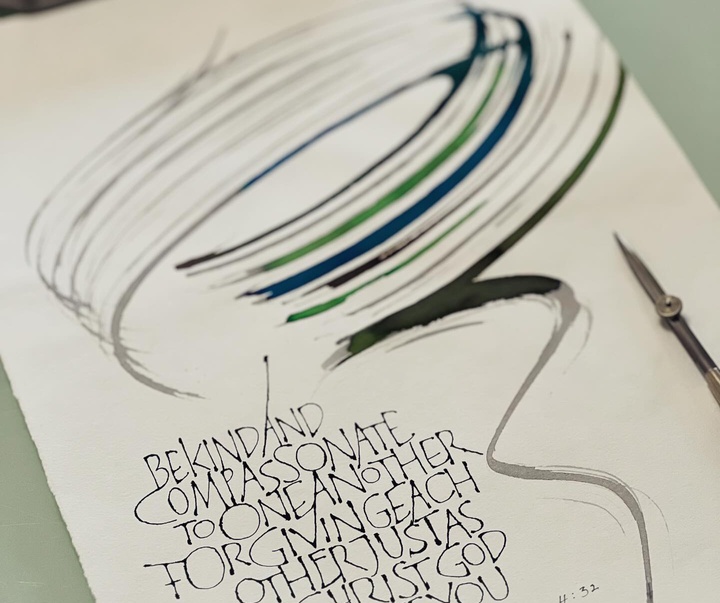 BE KIND AND
COMPASSONATE
TO ONE ANOTHER
FORGIVING EACH
OTHER JUST AS
CHRIST GOD
YOU
4:32